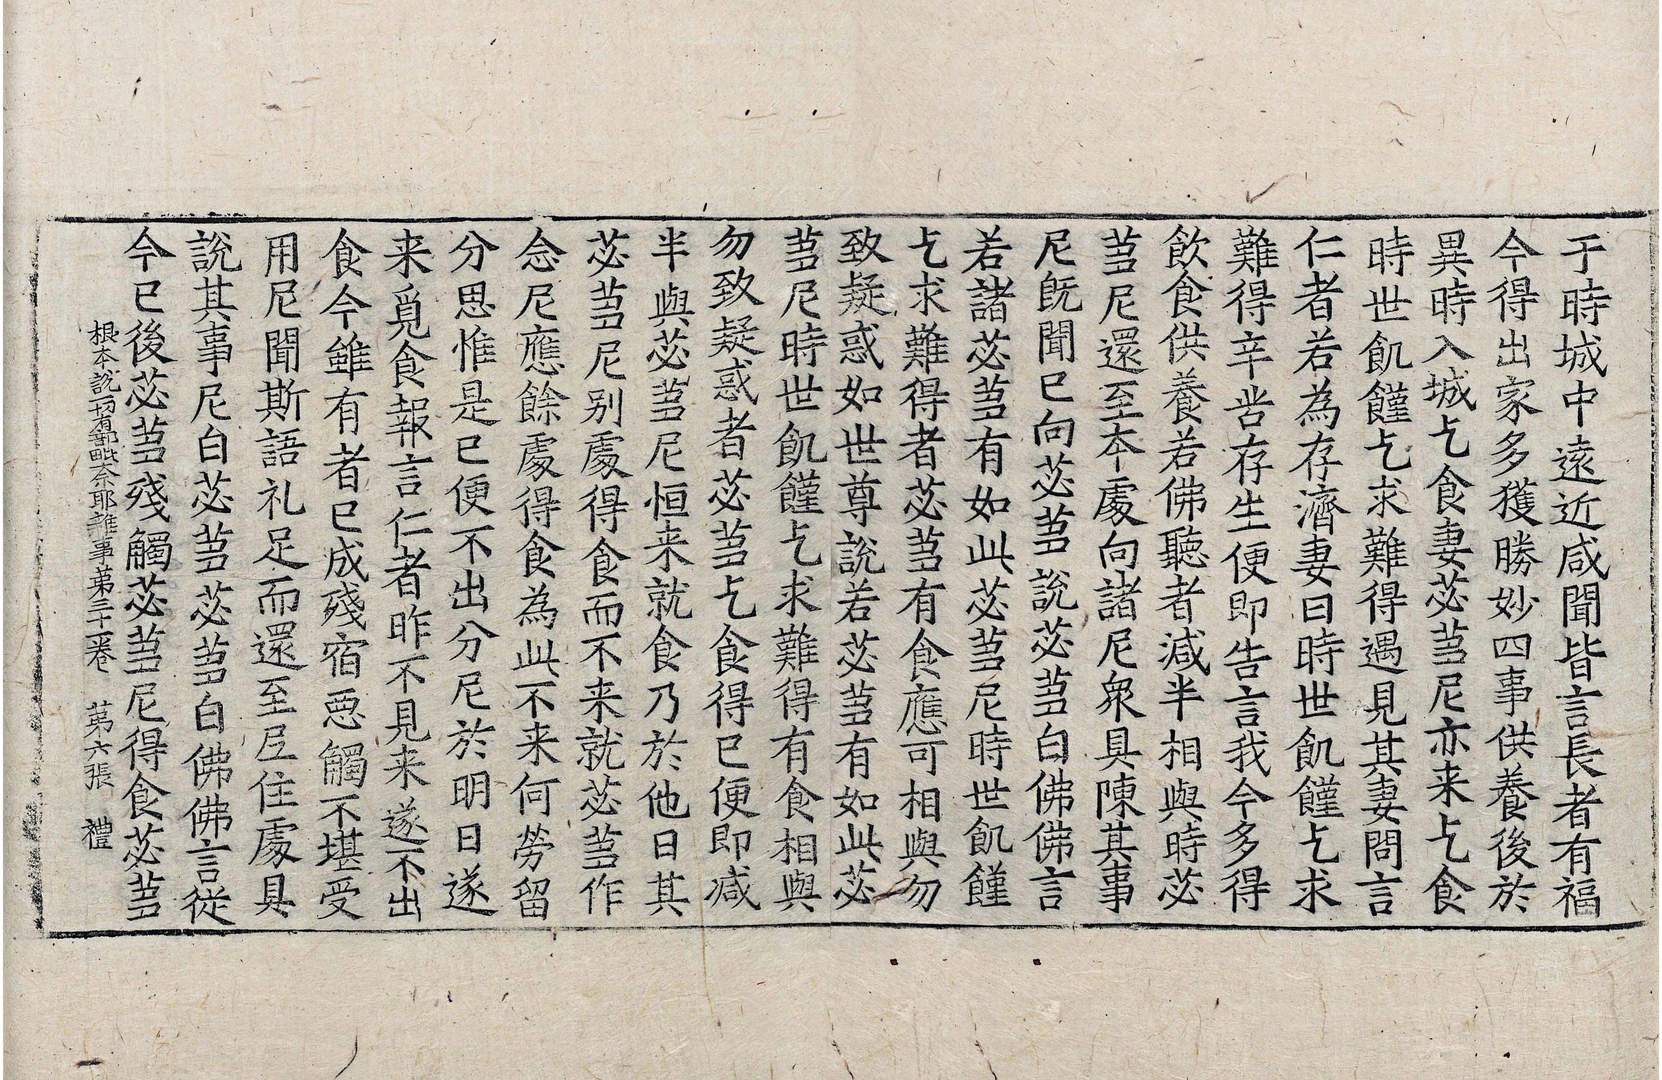 于時城中遠近咸聞皆言長者有福
今得出家多獲勝妙四事供養後於
異時入城乞食妻苾芻尼亦来乞食
時世飢饉乞求難得遇見其妻問言
仁者若為存濟妻曰時世飢饉乞求
難得辛苦存生便即告言我今多得
飲食供養若佛聽者減半相與時苾
芻尼還至本處向諸尼衆具陳其事
尼旣聞已向苾芻說苾芻白佛佛言
若諸苾芻有如此苾芻尼時世飢饉
乞求難得者苾芻有食應可相與勿
致疑惑如世尊說若苾芻有如此苾
芻尼時世飢饉乞求難得有食相與
勿致疑惑者苾芻乞食得已便即减
半與苾芻尼恒来就食乃於他日其
苾芻尼别處得食而不来就苾芻作
念尼應餘處得食為此不来何勞留
分思惟是已便不出分尼於明日遂
来覓食報言仁者昨不見来遂不出
食今雖有者已成殘宿惡觸不堪受
用尼聞斯語礼足而還至尼住處具
說其事尼白苾芻苾芻白佛佛言従
今已後苾芻殘觸苾芻尼得食苾芻
根本說一切有部毗奈耶雜事第三十二卷　第六張　禮